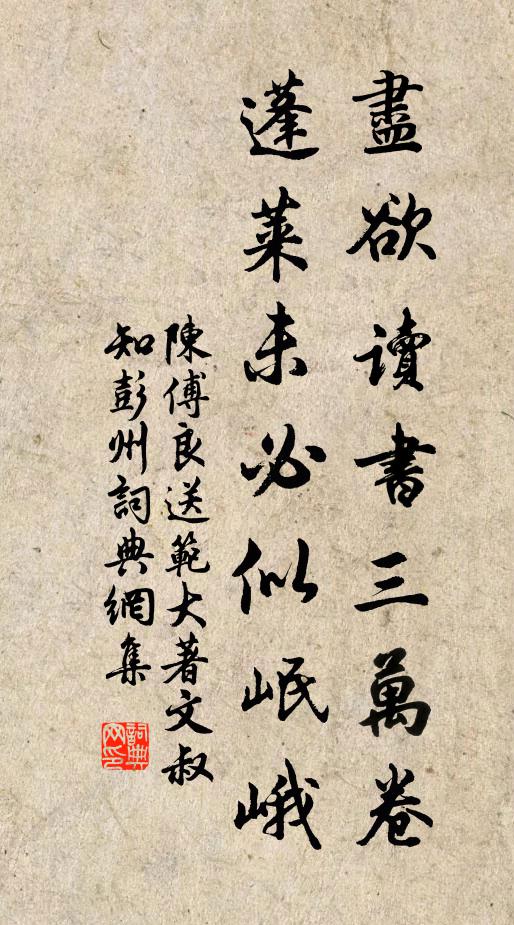 盡欲讀書三萬卷
蓬莱未必似岷峨
陳傅良送範大著文叔
知彭州詞典網集
詞典
网印